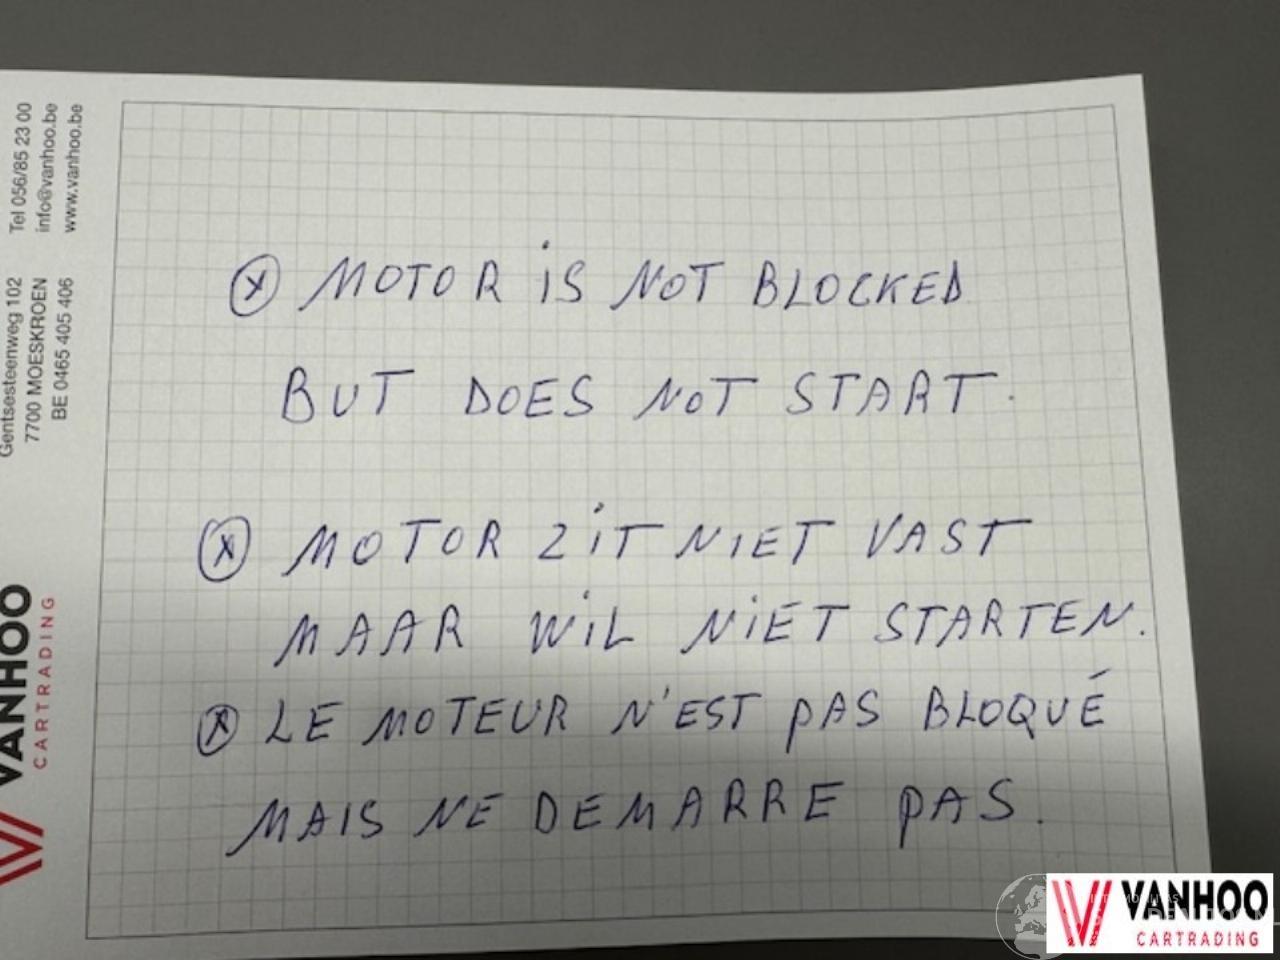 ⓧ MOTOR iS NOT BLOCKED
BUT DOES NOT START.
ⓧ MOTOR ZiT NIET VAST
MAAR WiL NiET STARTEN.
ⓧ LE MOTEUR N'EST pAS BLOQUÉ
MAIS NE DEMARRE pAS.
Tel 056/85 23 00
info@vanhoo.be
www.vanhoo.be
Gentsesteenweg 102
7700 MOESKROEN
BE 0465 405 406
VANHOO
CARTRADING
VANHOO
CARTRADING